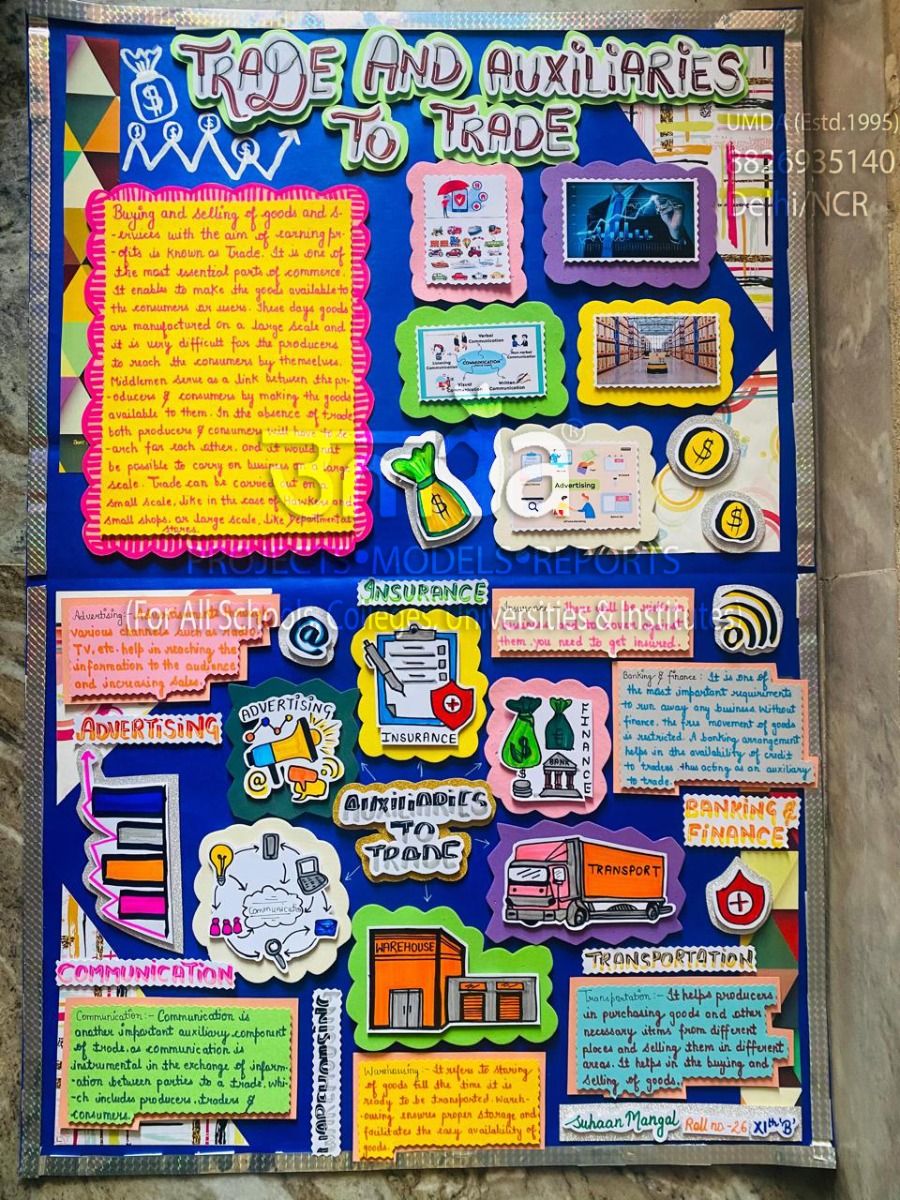 TRADE AND AUXILIARIES
TO TRADE
UMDA (Estd.1995)
Delhi/NCR
Buying and selling of goods and s-
-ervices with the aim of earning pr-
-ofits is known as Trade. It is one of
the most essential parts of commerce.
It enables to make the goods available to
the consumers or users. These days goods
are manufactured on a large scale and
it is very difficult for the producers
to reach the consumers by themselves.
Middlemen serve as a link between the pr-
-oducers & consumers by making the goods
available to them. In the absence of trade
both producers & consumers will have to se-
arch for each other, and it would not
be possible to carry on business on a large
scale. Trade can be carried out on a
small scale, like in the case of Hawkers and
small shops, or large scale, like Departmental
stores.
Verbal
Communication
Non-verbal
Communication
Listening
Communication
COMMUNICATION
Visual
Communication
Written
Communication
Advertising
PROJECTS•MODELS•REPORTS
(For All Schools, Colleges, Universities & Institutes)
INSURANCE
Advertising:-
various channels such as Radio,
TV, etc. help in reaching the
information to the audience
and increasing sales.
ADVERTISING
them, you need to get insured.
Banking & finance: It is one of
the most important requirements
to run away any business without
finance, the free movement of goods
is restricted. A banking arrangement
helps in the availability of credit
to traders thus acting as an auxiliary
to trade.
BANKING &
FINANCE
ADVERTISING
INSURANCE
FINANCE
BANK
AUXILIARIES
TO
TRADE
Communication
TRANSPORT
WAREHOUSE
COMMUNICATION
Communication:- Communication is
another important auxiliary component
of trade, as communication is
instrumental in the exchange of inform-
-ation between parties to a trade, whi-
-ch includes producers, traders &
consumers.
WAREHOUSING
Warehousing:- It refers to storing
of goods till the time it is
ready to be transported. Wareh-
-ousing ensures proper storage and
facilitates the easy availability of
goods.
TRANSPORTATION
Transportation:- It helps producers
in purchasing goods and other
necessary items from different
places and selling them in different
areas. It helps in the buying and
selling of goods.
Suhaan Mangal Roll no-26 XIth 'B'